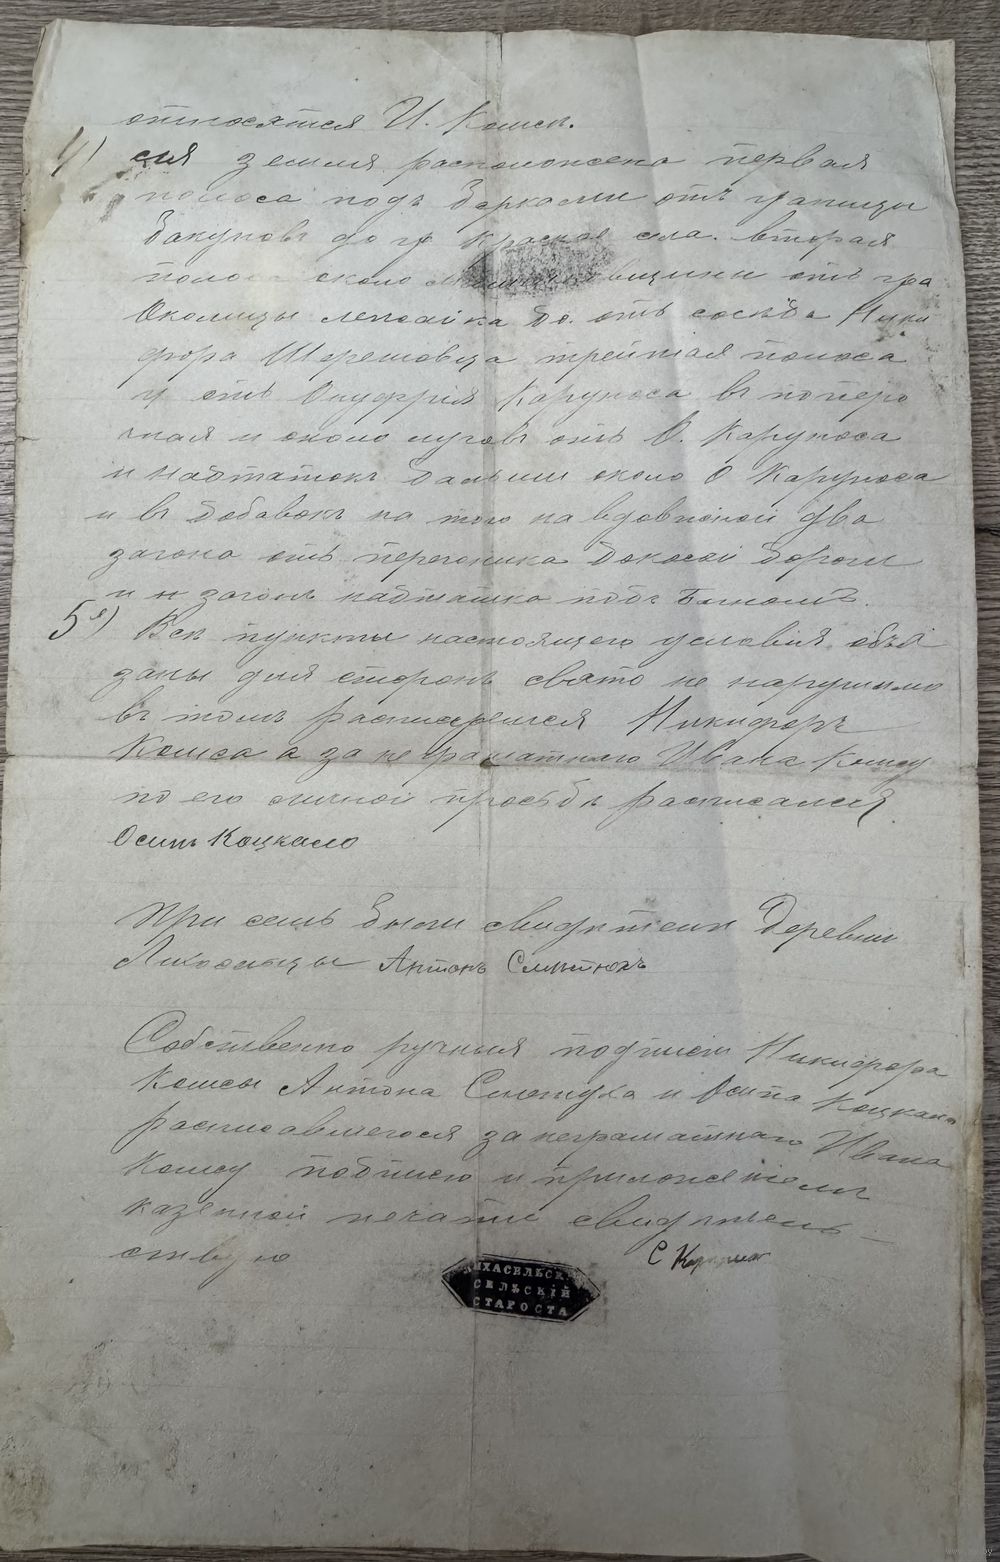 относятся И. Комсѣ.
4) сия земля расположена первая
полоса подъ Борками отъ границы
до гр Красно села. вторая
полоса около отъ гра
Околицы до. отъ сосѣда Ники
фора Шерешовца третия полоса
и отъ Онуфрія Карупоса въ попере
чная и около луговъ отъ О. Карупоса
и надтатокъ дальши около О Карупоса
и въ добавокъ на того на вдовиной два
загона отъ дороги
и н загонъ подъ
5е) Всѣ пункты настоящего условія обѣя
заны для сторонъ свято не нарушимо
въ томъ расписуемся Никифоръ
Комса а за не граматного Ивана Комсу
по его личной прозьбѣ расписался
Осипъ Коцкало
При семъ были свидѣтели Деревни
Антонъ Смѣтюхъ
Собственно ручныя подписи Никифора
Комсы Антона Сметюха и Осипа Коцкало
расписавшегося за неграматнаго Ивана
Комсу подписю и приложениемъ
казенной печати свидѣтель-
ствую
С
МИХАСЕЛЬСК
СЕЛЬСКІЙ
СТАРОСТА